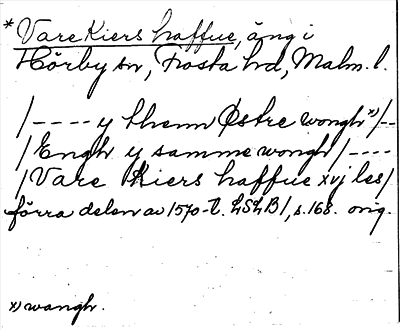 * Vare Kiers haffue, äng i
Hörby sn, Frosta hd, Malm. l.
/---- y thenn Østre wongh x)/--
/Engh y samme wongh/----
/Vare Kiers haffue xvj les/
förra delen av 1570-t. LSLB1, s.168. orig.
x) wangh.